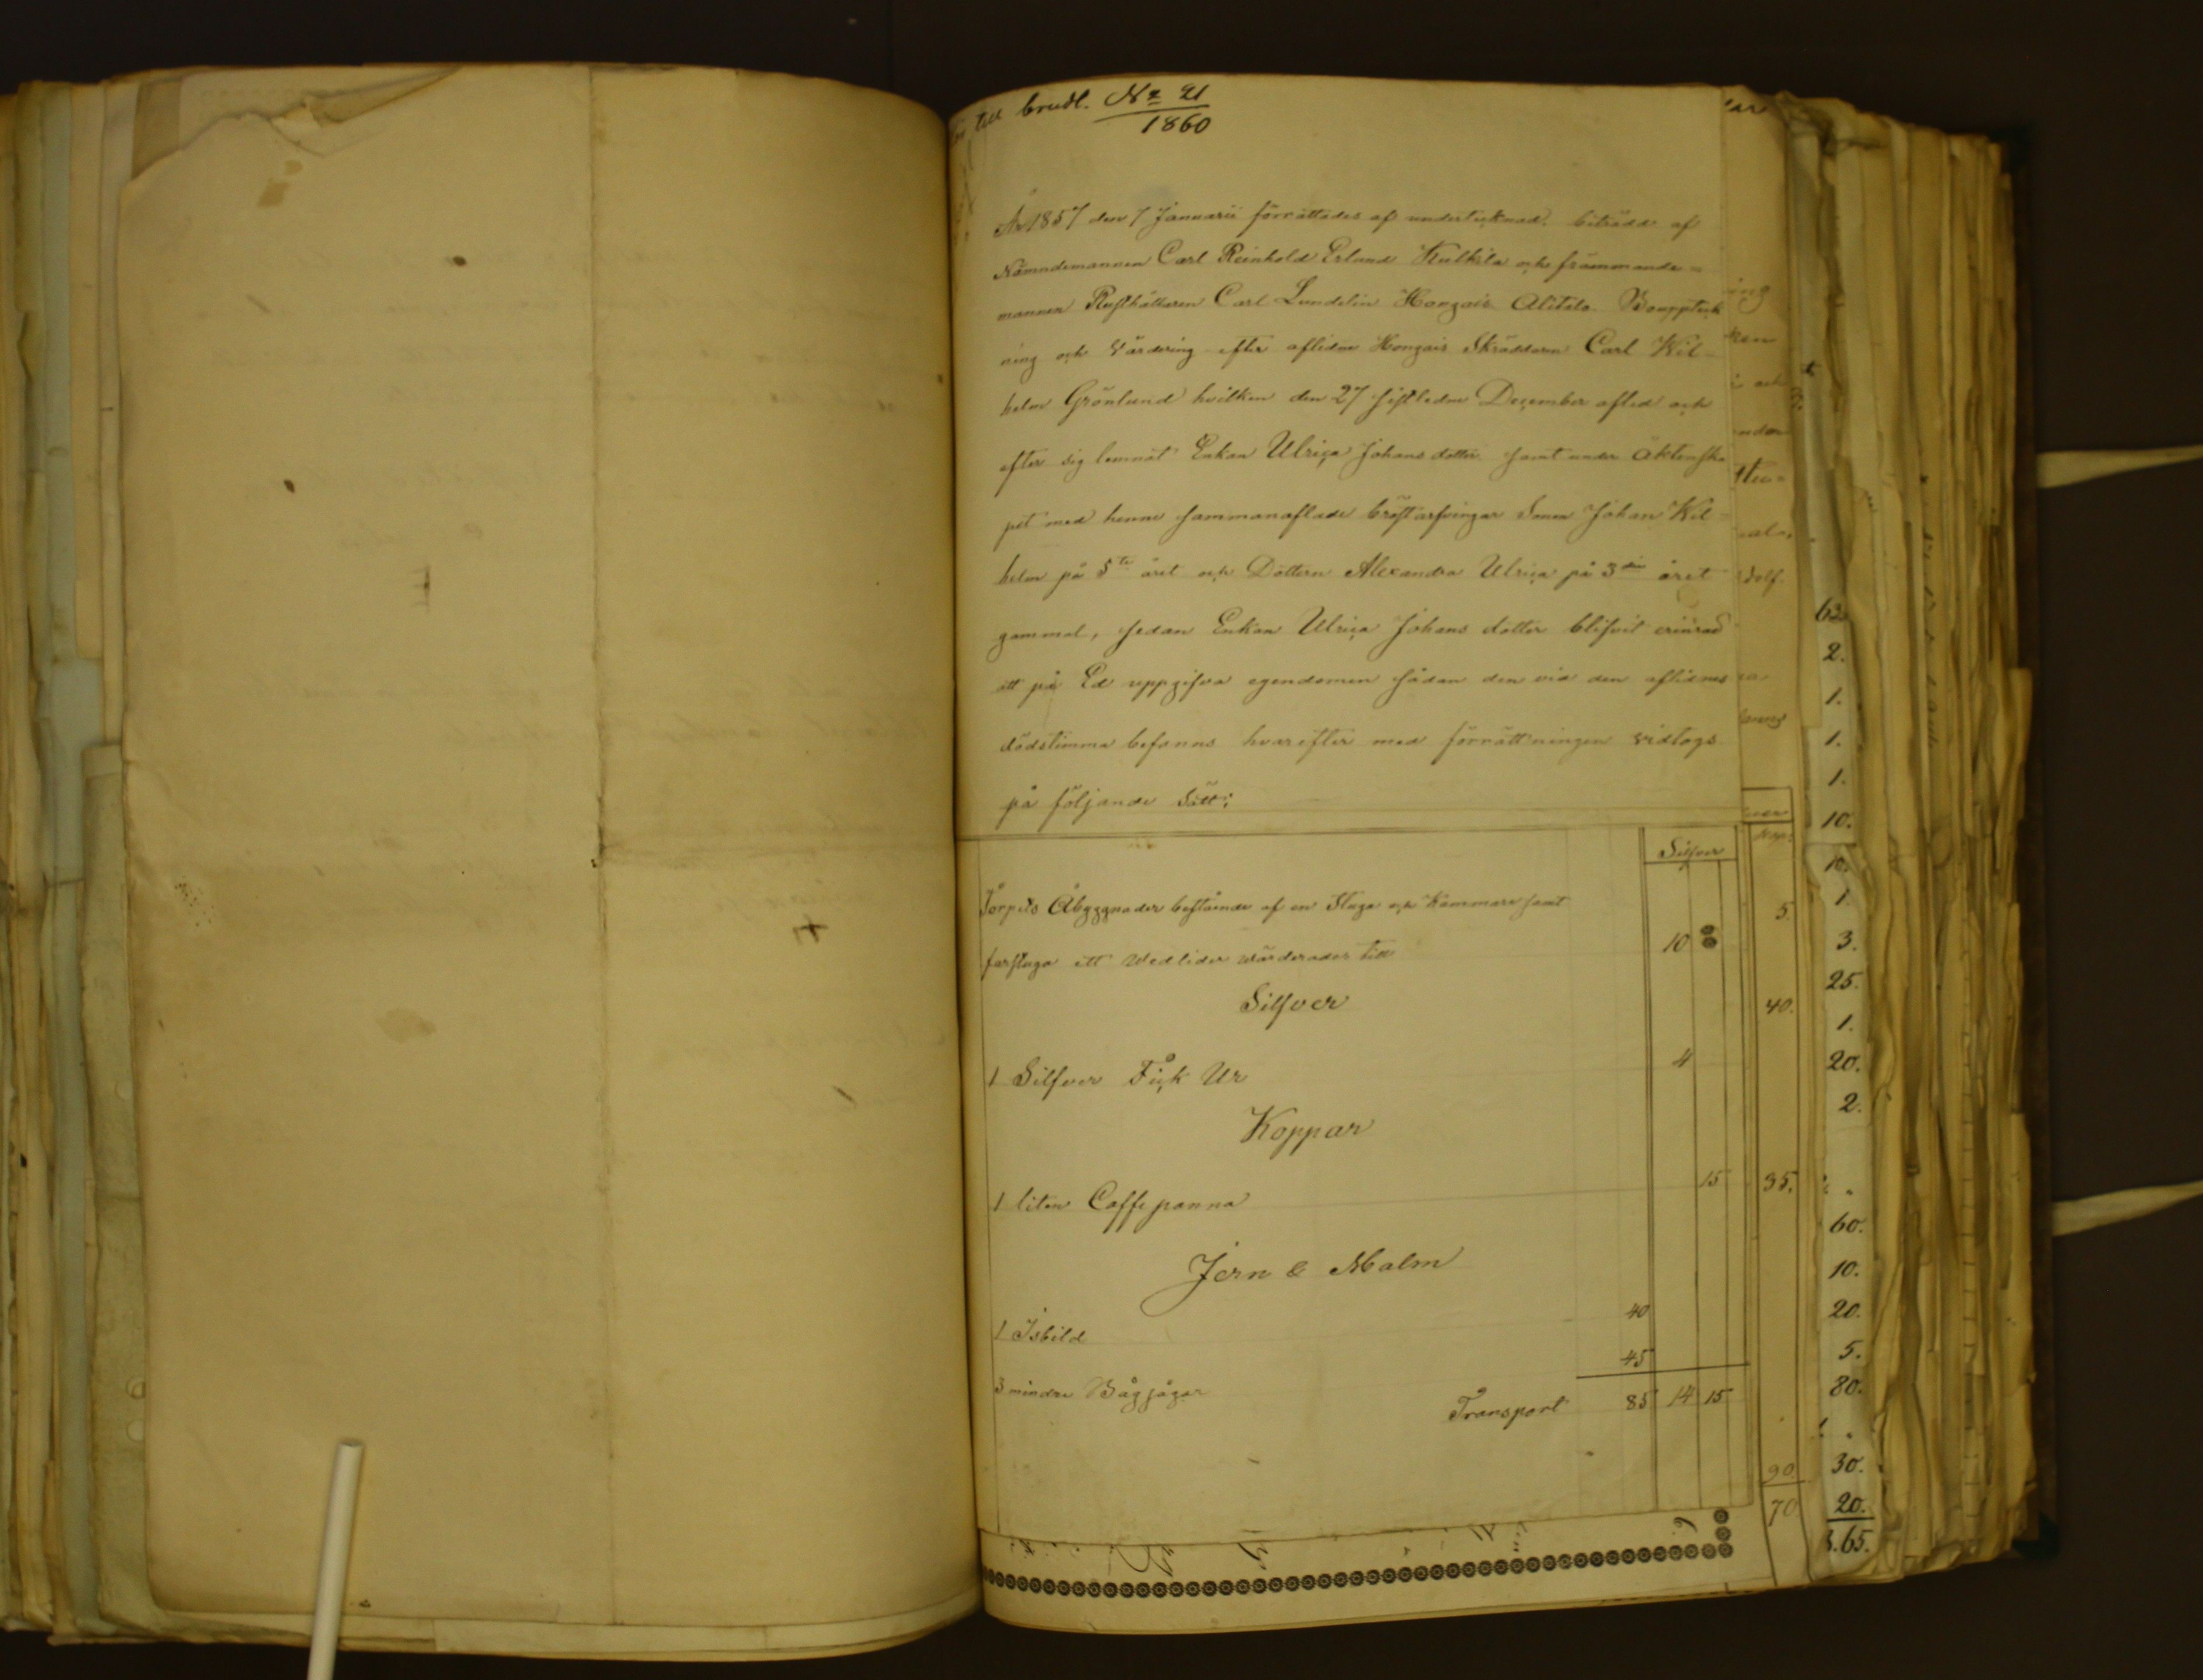 till brudl. No 21
1860
År 1857 den 7 Januarii förrättades af undertecknad, biträdd af
Nämndemannen Carl Reinhold Erlund Kulkila och främmande=
mannen Rusthållaren Carl Lundelin Hongais Alitalo Bouppteck
ning och Värdering efter aflidne Hongais Skräddaren Carl Wil-
helm Grönlund hvilken den 27 sistledne December afled och
efter sig lemnat Enkan Ulrica Johans dotter samt under Äktenska
pet med henne sammanaflade bröstarfvingar Sonen Johan Wil=
helm på 5te året och Dottern Alexandra Ulrica på 3die året
gammal, sedan Enkan Ulrica Johans dotter blifvit erinrad
att på Ed uppgifva egendomen sådan den vid den aflidnes
dödstimma befanns hvarefter med förrättningen vidtogs
på följande Sätt:
Silfver
Torpets Åbyggnader bestående af en Stuga och Kammare samt
farstuga ett Wedlider wärderades till 10
Silfver
1 Silfver Fick Ur 4
Koppar
1 liten Caffe panna 15
Jern & Malm
1 Isbild 40
3 mindre Bågsågar 45
Transport 85 14 15
5.
40.
35.
90.
70
63.
2.
1.
1.
1.
10.
10.
1.
3.
25.
1.
20.
2.
60.
10.
20.
5.
80.
30.
20.
65.